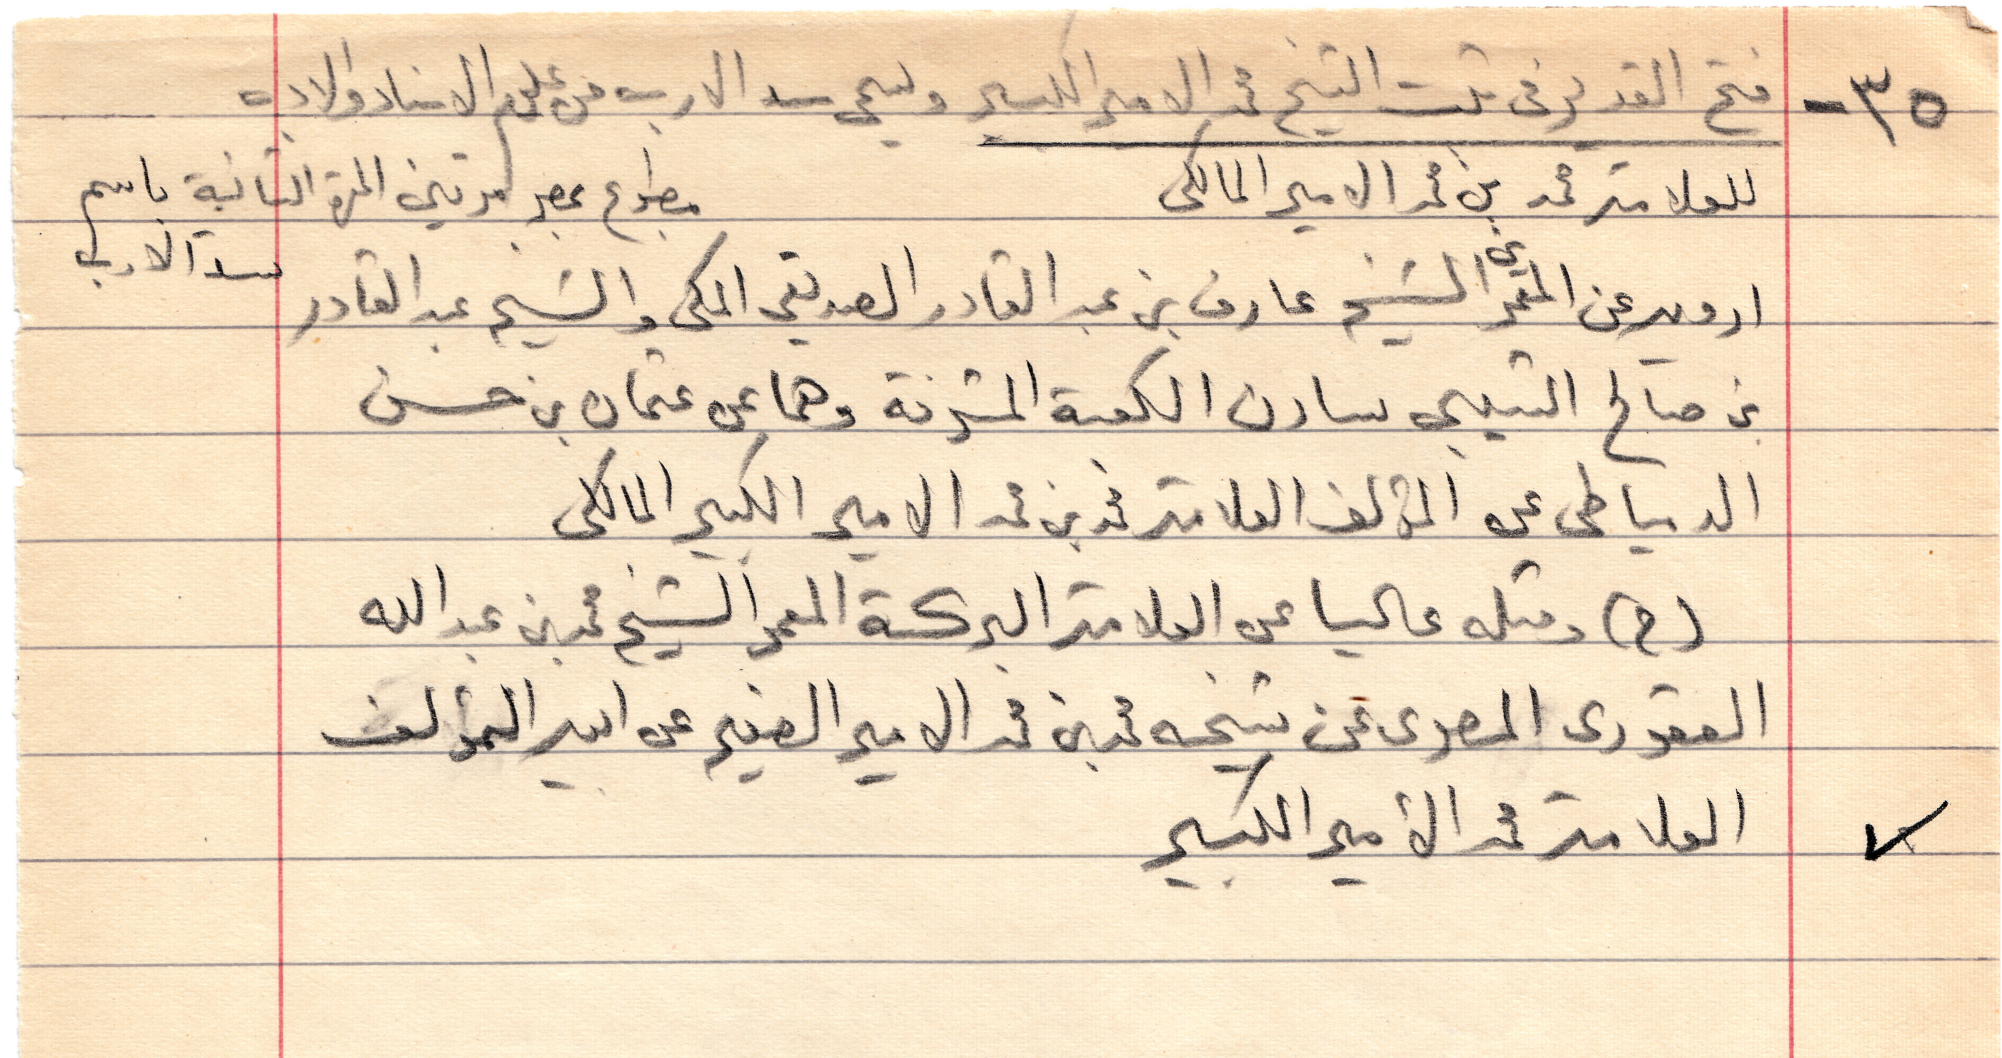 ٣٥- فتح القدير فى ثبت الشيخ محمد الامير الكبير ويسمى سد الارب من علوم الاسناد والادب
للعلامة محمد بن محمد الامير المالكى مطبوع بمصر مرتين المرة الثانية باسم
سد الارب
ارويه عن المعمرين الشيخ عارف بن عبد القادر الصديقى المكى والشيخ عبد القادر
بن صالح الشيبى سادن الكعبة المشرفة وهما عن عثمان بن حسن
الدمياطى عن المؤلف العلامة محمد بن محمد الامير الكبير المالكى
(ح) ومثله عاليا عن العلامة البركة المعمر الشيخ محمد بن عبد الله
العقورى المصرى عن شيخه محمد بن محمد الامير الصغير عن ابيه المؤلف
العلامة محمد الأمير الكبير